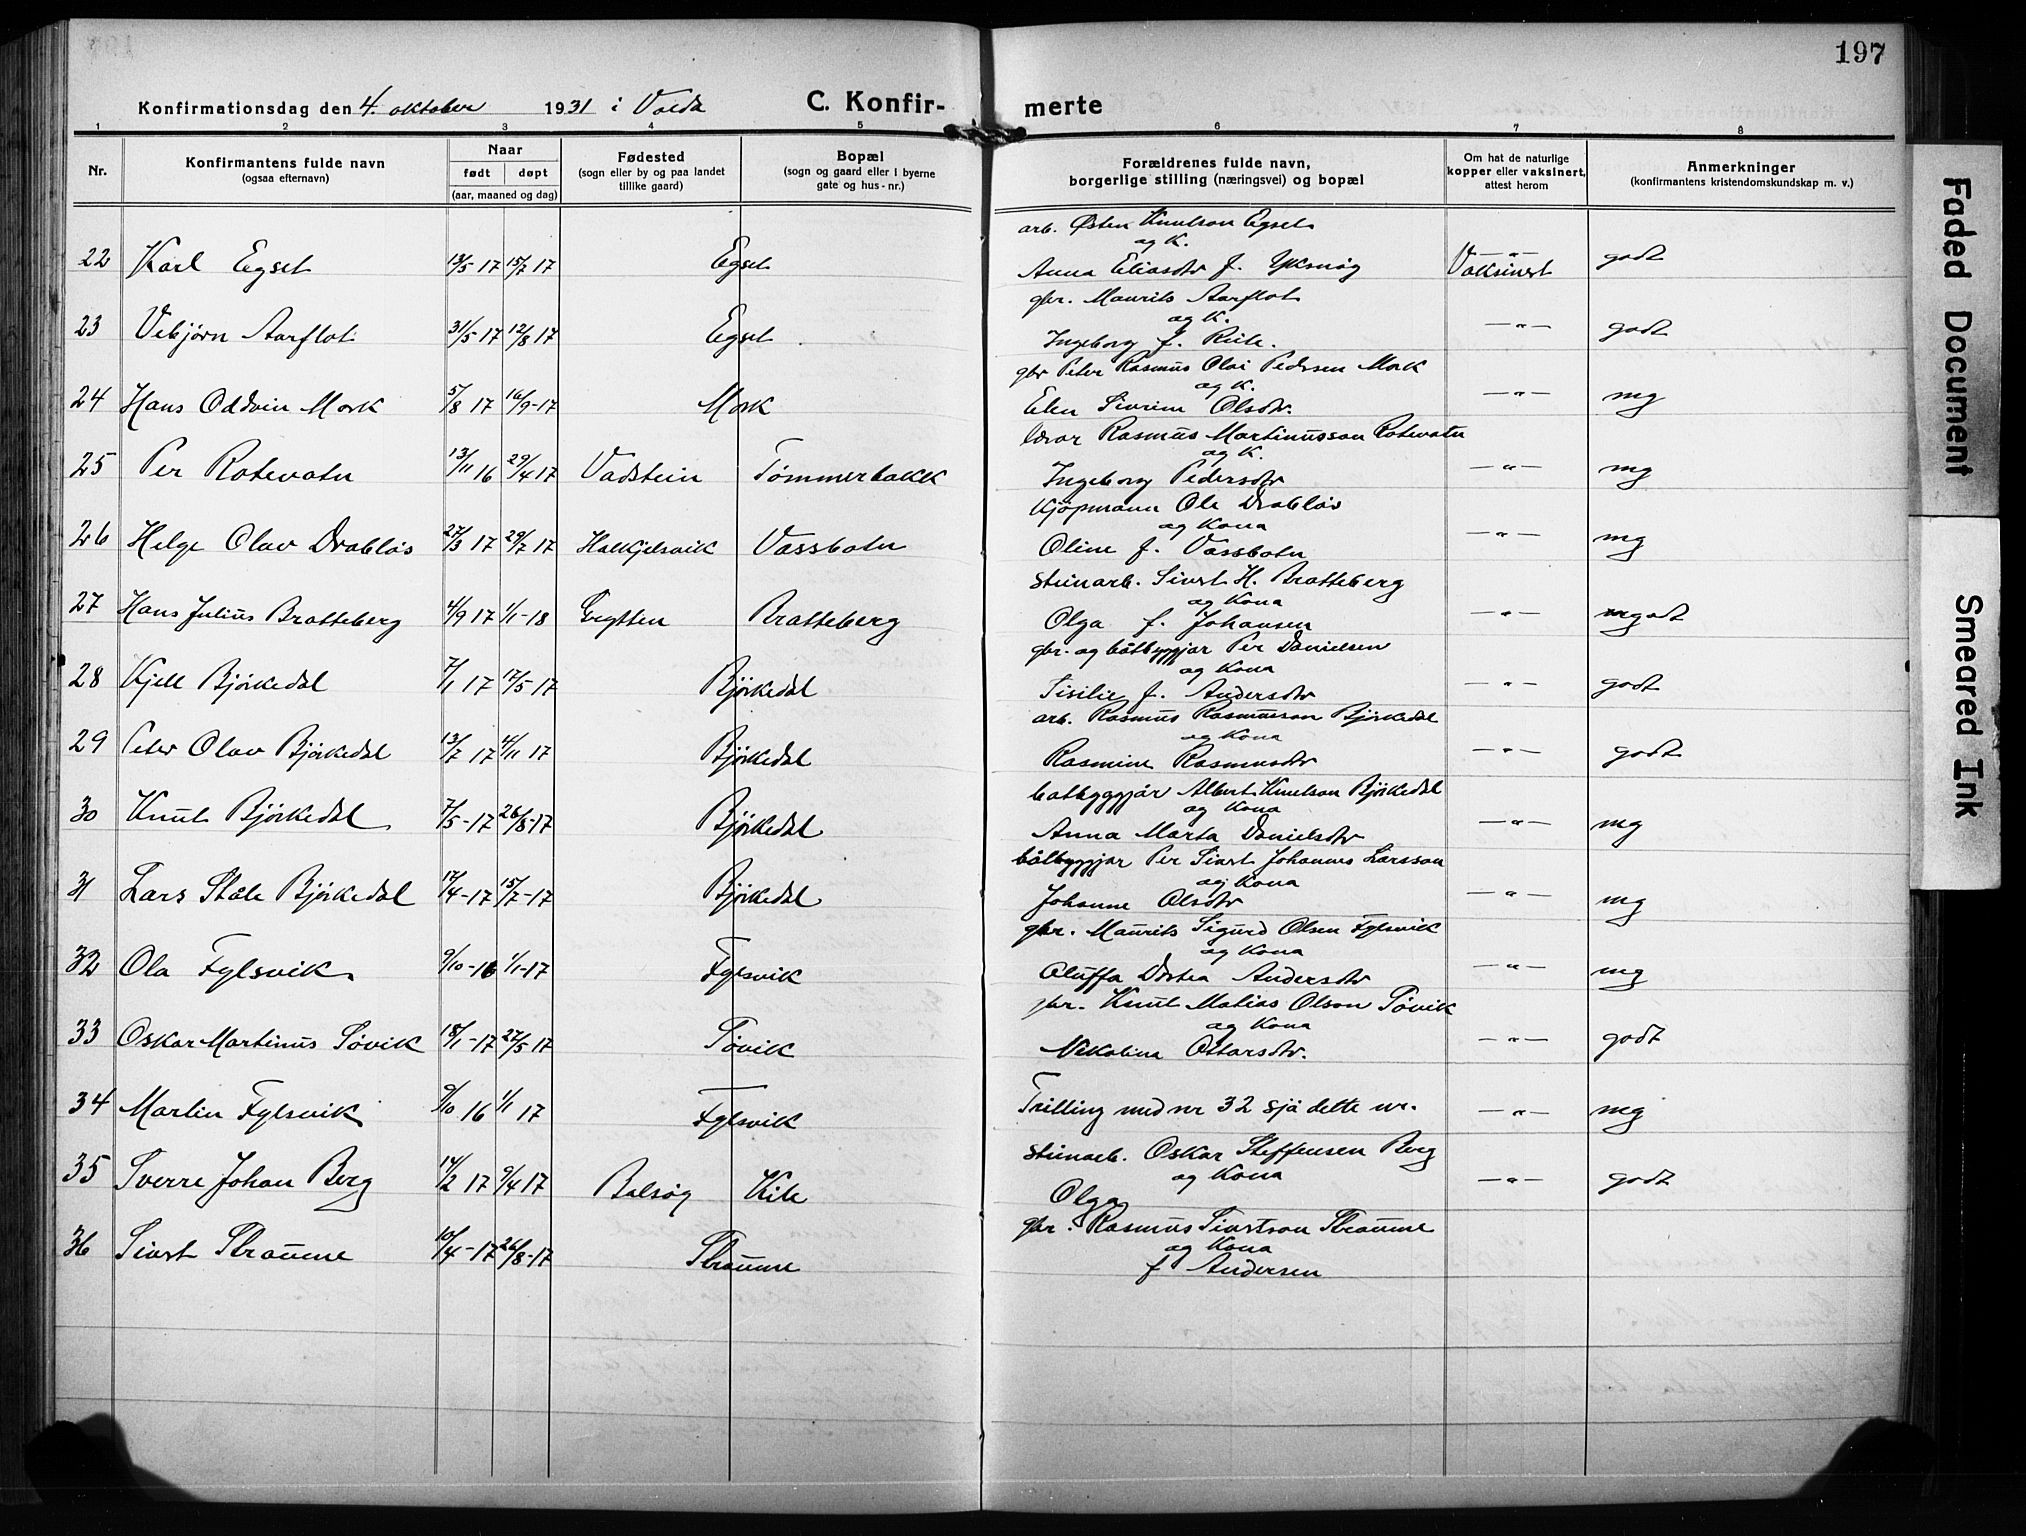 197
Konfirmationsdag den 4. oktober 1931 i Volda C. Konfir- merte
1 2 3 4 5 6 7 8
Nr. Konfirmantens fulde navn (ogsaa efternavn) Naar født døpt (aar, maaned og dag) Fødested (sogn eller by og paa landet tillike gaard) Bopæl (sogn og gaard eller i byerne gate og hus-nr.) Forældrenes fulde navn, borgerlige stilling (næringsvei) og bopæl Om hat de naturlige kopper eller vaksinert, attest herom Anmerkninger (konfirmantens kristendomskundskap m. v.)
arb. Østen Knutson Egset
og K.
22 Karl Egset 13/5 17 15/7 17 Egset Anna Eliasdtr f. Yksnøy Vaksinert godt
gbr. Maurits Aarflot
og K.
23 Vebjørn Aarflot 31/5-17 12/8 17 Egset Ingeborg f. Riite. —"— godt
gbr Peter Rasmus Olai Pedersen Mork
og K.
24 Hans Oddvin Mork 5/8 17 16/9-17 Mork Elen Sivrine Olsdtr. —"— mg
lærar Rasmus Martinusson Rotevatn
og K.
25 Per Rotevatn 13/11 16 29/4 17 Vadstein Tømmerbakk Ingeborg Pedersdtr —"— mg
Kjøpmann Ole Drabløs
og Kona
26 Helge Olav Drabløs 27/3 17 29/7 17 Halkjelsvik Vassbotn Oline f. Vassbotn —"— mg
steinarb. Sivert H. Bratteberg
og Kona
27 Hans Julius Bratteberg 4/9 17 1/1-18 Grytten Bratteberg Olga f. Johansen —"— godt
gbr. og båtbyggjar Per Danielsen
og Kona
28 Kjell Bjørkedal 7/1 17 17/5-17 Bjørkedal Sisilie f. Andersdtr —"— godt
arb. Rasmus Rasmusson Bjørkedal
og Kona
29 Peter Olav Bjørkedal 13/7 17 4/11 17 Bjørkedal Rasmine Rasmusdtr —"— godt
båtbyggjar Albert Knutson Bjørkedal
og Kona
30 Knut Bjørkedal 7/5-17 26/8-17 Bjørkedal Anna Marta Danielsdtr —"— mg
båtbyggjar Per Sivert Johannes Larsson
og Kona
31 Lars Ståle Bjørkedal 17/4-17 15/7-17 Bjørkedal Johanne Olsdtr —"— mg
gbr. Maurits Sigurd Olsen Fylsvik
og Kona
32 Ola Fylsvik 9/10-16 1/1-17 Fylsvik Oluffa Dortea Andersdtr —"— mg
gbr. Knut Matias Olson Søvik
og Kona
33 Oskar Martinus Søvik 18/1-17 27/5 17 Søvik Nikolina Ottarsdtr. —"— godt
34 Martin Fylsvik 9/10 16 1/1 17 Fylsvik Tvilling med nr 32 sjå dette nr. —"— mg
steinarb. Oskar Steffensen Berg
og Kona
35 Sverre Johan Berg 14/2 17 9/4 17 Balsøy Kile Olga —"— godt
gbr. Rasmus Sivertson Straume
og Kona
36 Sivert Straume 10/4-17 26/8-17 Straume f Andersen
Faded Document
Smeared Ink